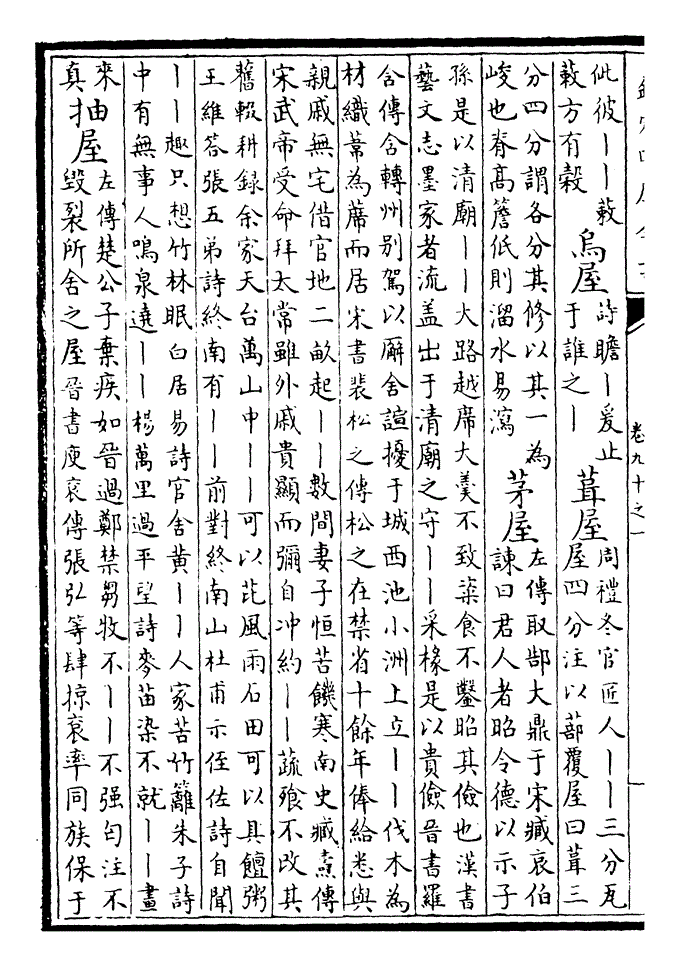 卷九十之一
佌彼丨丨蔌
蔌方有穀
烏屋
詩瞻丨爰止
于誰之丨
葺屋
周禮冬官匠人丨丨三分瓦
屋四分注以蔀覆屋曰葺三
分四分謂各分其修以其一為
峻也脊高簷低則溜水易瀉
茅屋
左傳取郜大鼎于宋臧哀伯
諫曰君人者昭令德以示子
孫是以清廟丨丨大路越席大羹不致粢食不鑿昭其儉也漢書
藝文志墨家者流盖出于清廟之守丨丨采椽是以貴儉晉書羅
含傳含轉州别駕以廨舍諠擾于城西池小洲上立丨丨伐木為
材織葦為蓆而居宋書裴松之傳松之在禁省十餘年俸給悉與
親戚無宅借官地二畝起丨丨數間妻子恒苦饑寒南史臧燾傳
宋武帝受命拜太常雖外戚貴顯而彌自冲約丨丨蔬飱不改其
舊輟耕録余家天台萬山中丨丨可以芘風雨石田可以具饘粥
王維荅張五弟詩終南有丨丨前對終南山杜甫示侄佐詩自聞
丨丨趣只想竹林眠白居易詩官舍黄丨丨人家苦竹籬朱子詩
中有無事人鳴泉遶丨丨楊萬里過平望詩麥苗染不就丨丨畫
來
真
抽屋
左傳楚公子棄疾如晉過鄭禁芻牧不丨丨不强匄注不
毁裂所舍之屋晉書庾衮傳張弘等肆掠衮率同族保于